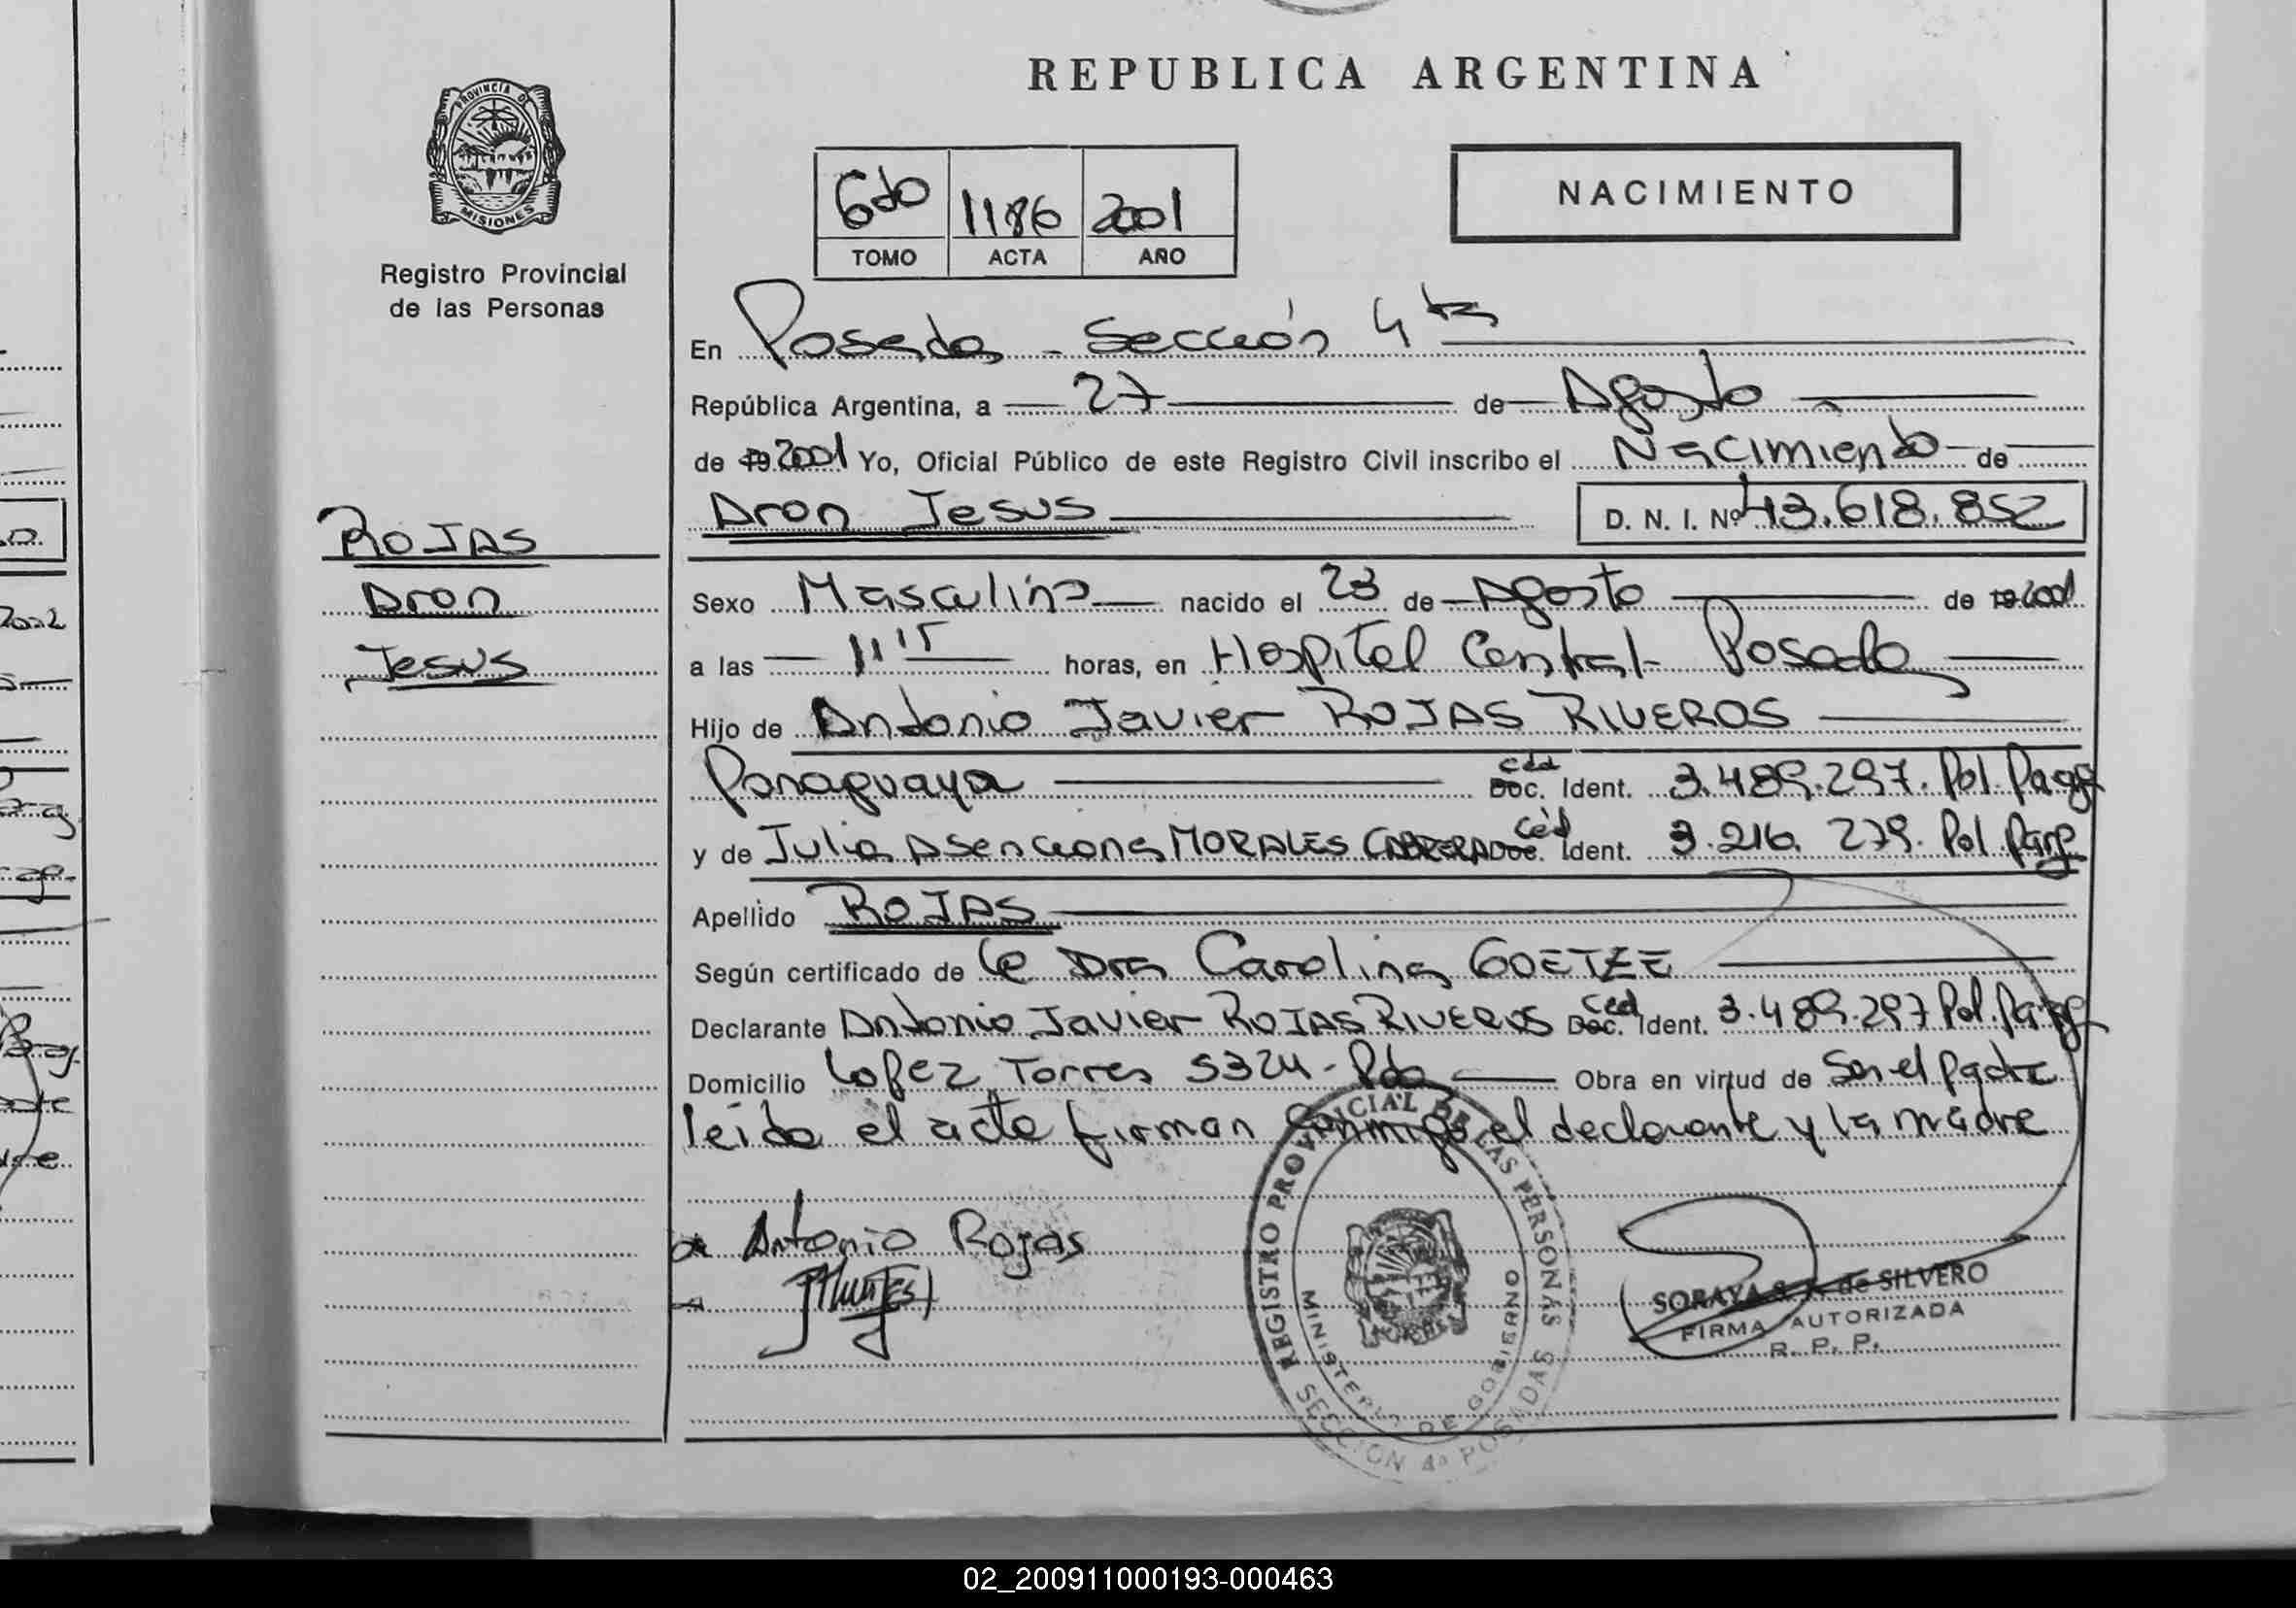 REPUBLICA ARGENTINA
PROVINCIA DE
MISIONES
Registro Provincial
de las Personas
6to 1186 2001
TOMO ACTA AÑO
NACIMIENTO
En Posadas - Sección 4ta
República Argentina, a 27 de Agosto
de 19 2001 Yo, Oficial Público de este Registro Civil inscribo el Nacimiento de
Aron Jesus D. N. I. Nº 43.618.852
ROJAS
Aron
Jesus
Sexo Masculino nacido el 23 de Agosto de 19 2001
a las 11 15 horas, en Hospital Central Posadas
Hijo de Antonio Javier ROJAS RIVEROS
Paraguaya Ced Doc. Ident. 3.489.297. Pol. Parag
y de Julia Asenciona MORALES CABRERA Céd Doc. Ident. 3.216.279. Pol. Parg.
Apellido ROJAS
Según certificado de la Dra Carolina GOETZE
Declarante Antonio Javier ROJAS RIVEROS Ced Doc. Ident. 3.489.297 Pol. Parag
Domicilio Lopez Torres 5324 - Pdas Obra en virtud de Ser el padre
leida el acta firman conmigo el declarante y la madre
Antonio Rojas
REGISTRO PROVINCIAL DE LAS PERSONAS
MINISTERIO DE GOBIERNO
SECCION 4ª POSADAS
SORAYA S. de SILVERO
FIRMA AUTORIZADA
R. P. P.
02_200911000193-000463